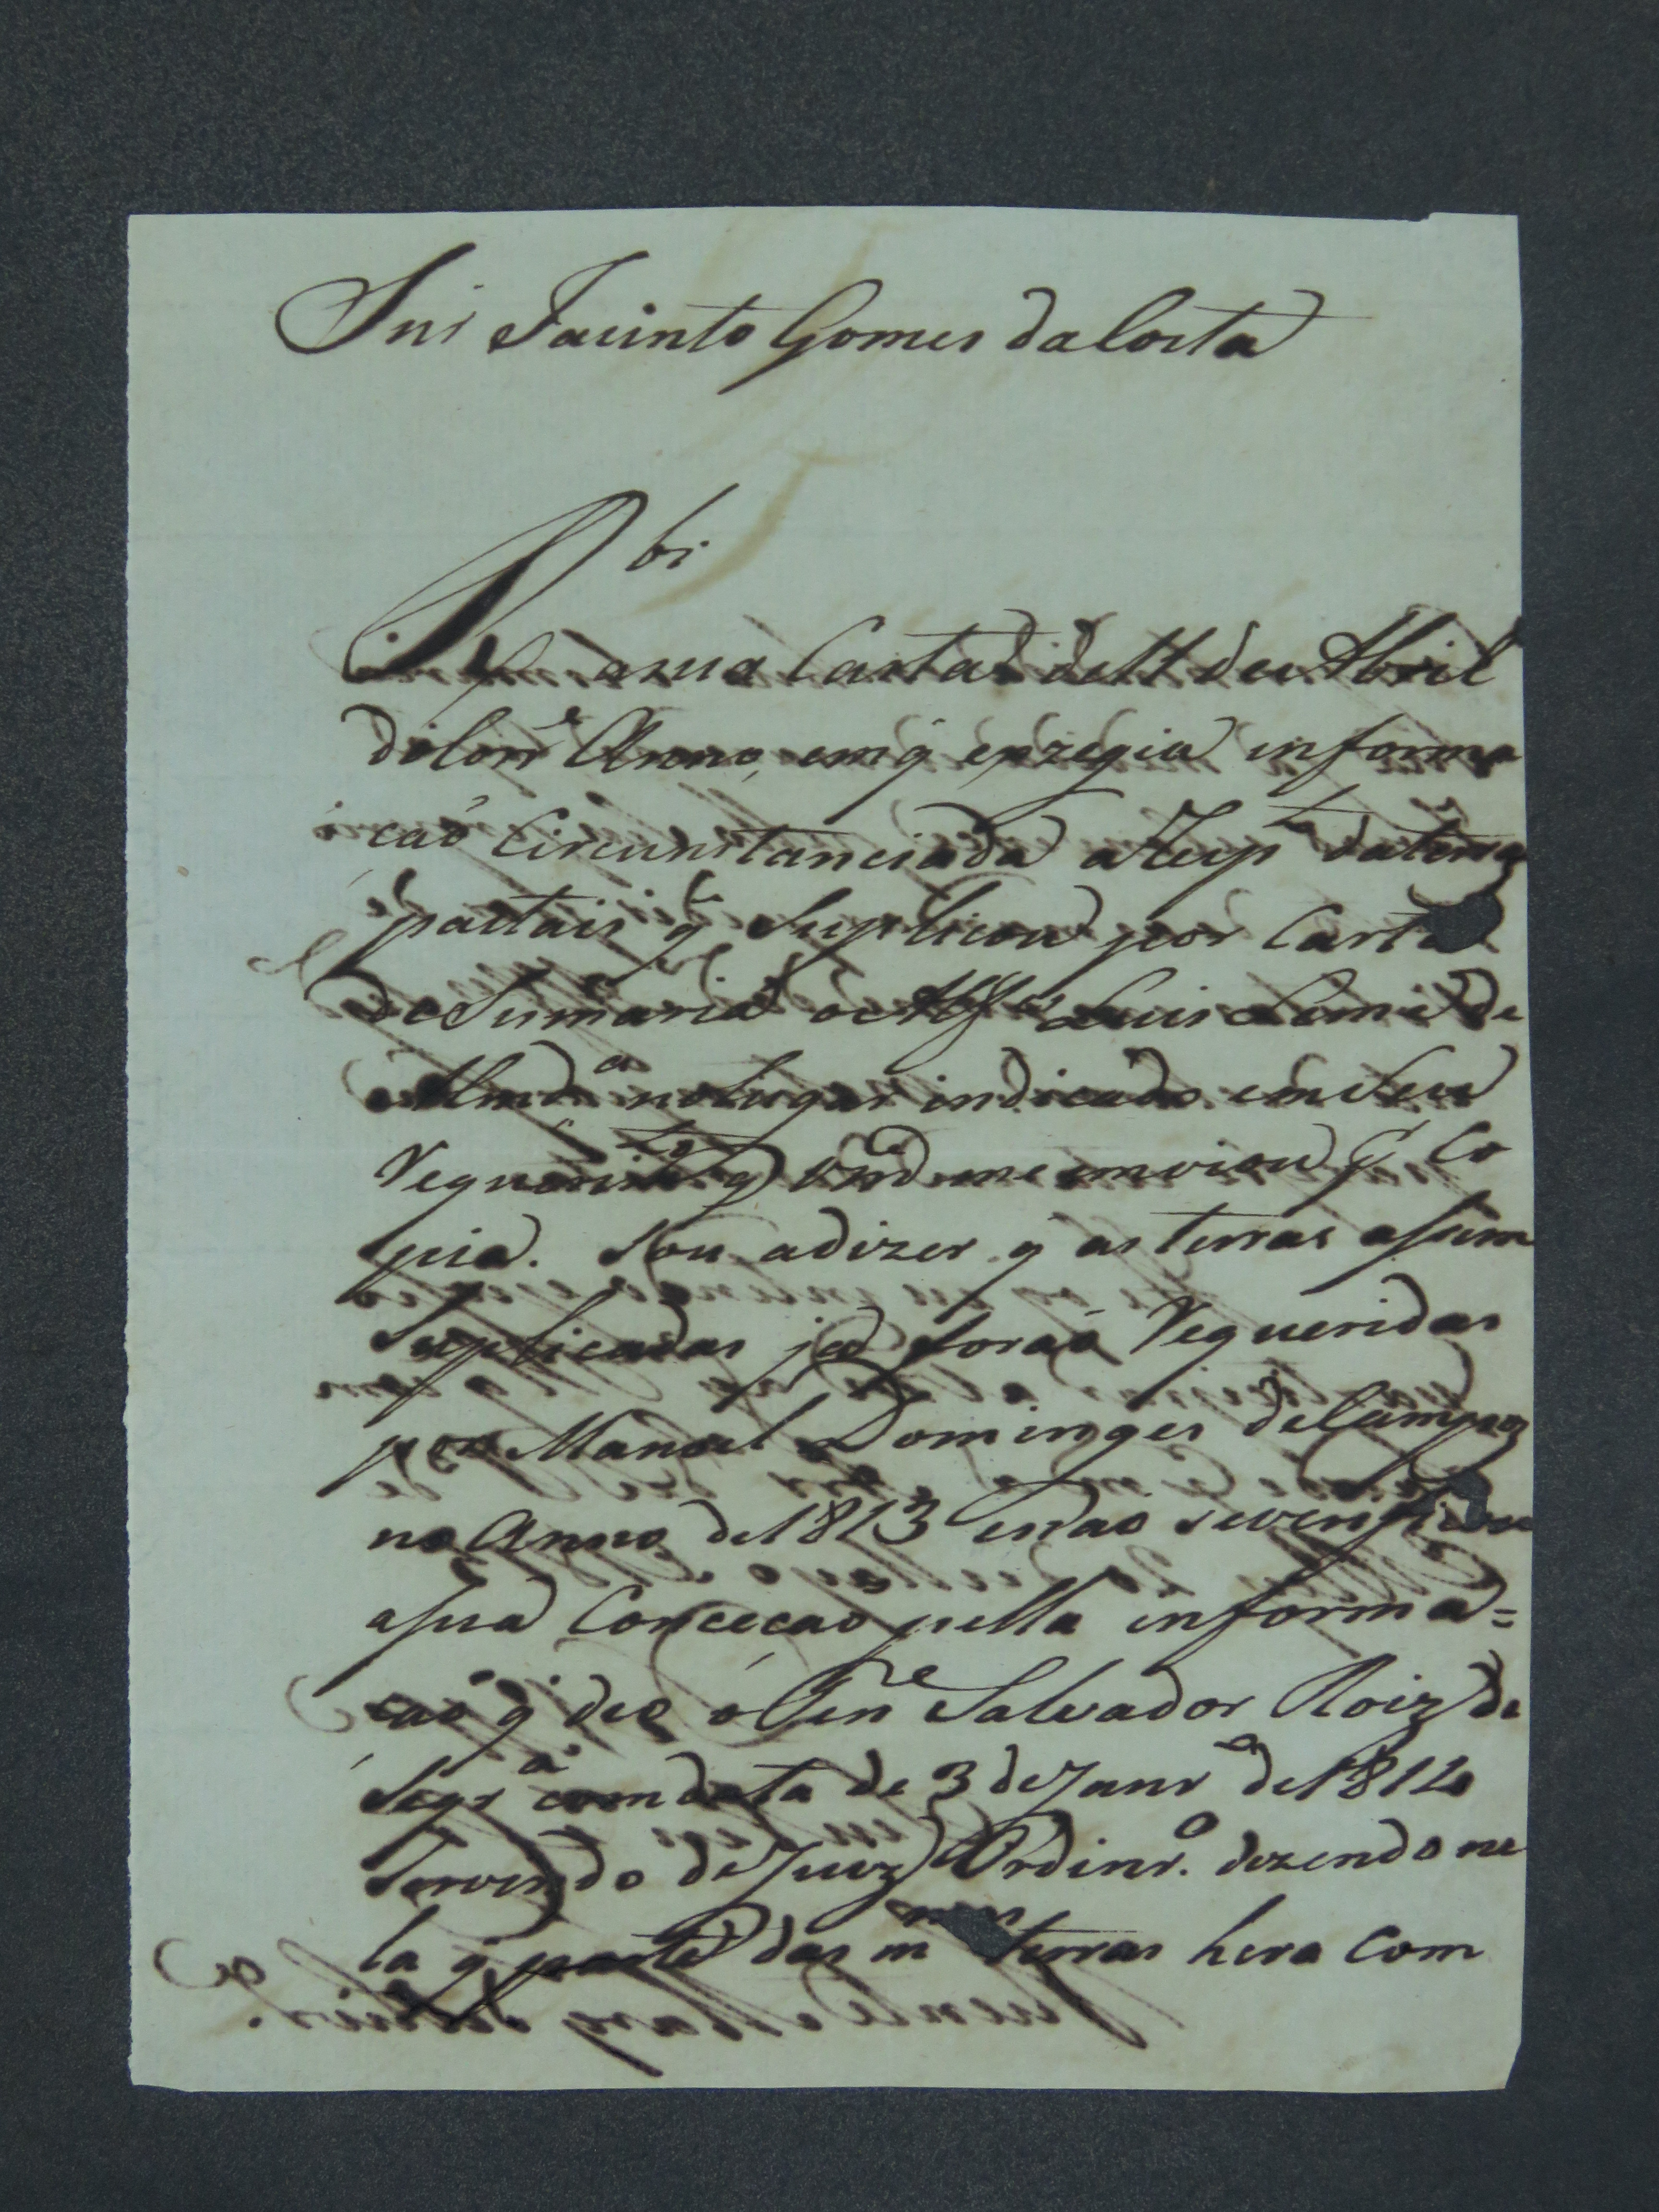 Snr Jacinto Gomes da Costa
Rbi
a sua Carta de 11 de Abril
do Corre Anno, em q exzegia informa
çaõ Circunstanciada a Resp to da terra
pactais q Suplicou por Carta
de Sismaria o Alfes Luis Leme de
Almda no Lugar indicado em Seu
Requerimto q Vmd me inviou p Co
pia. Sou a dizer q as terras asim
Suplicadas ja foraõ Requeridas
por Manoel Dominges de Campos
no Anno de 1813 e naõ severificou
asua Conceçaõ pella informa=
çaõ q deo o Tene Salvador Roiz de
Siqra com data de 3 de Janro de 1814
Servindo de Juiz Ordinro. dizendo ne
la q parte das mmas terras hera com